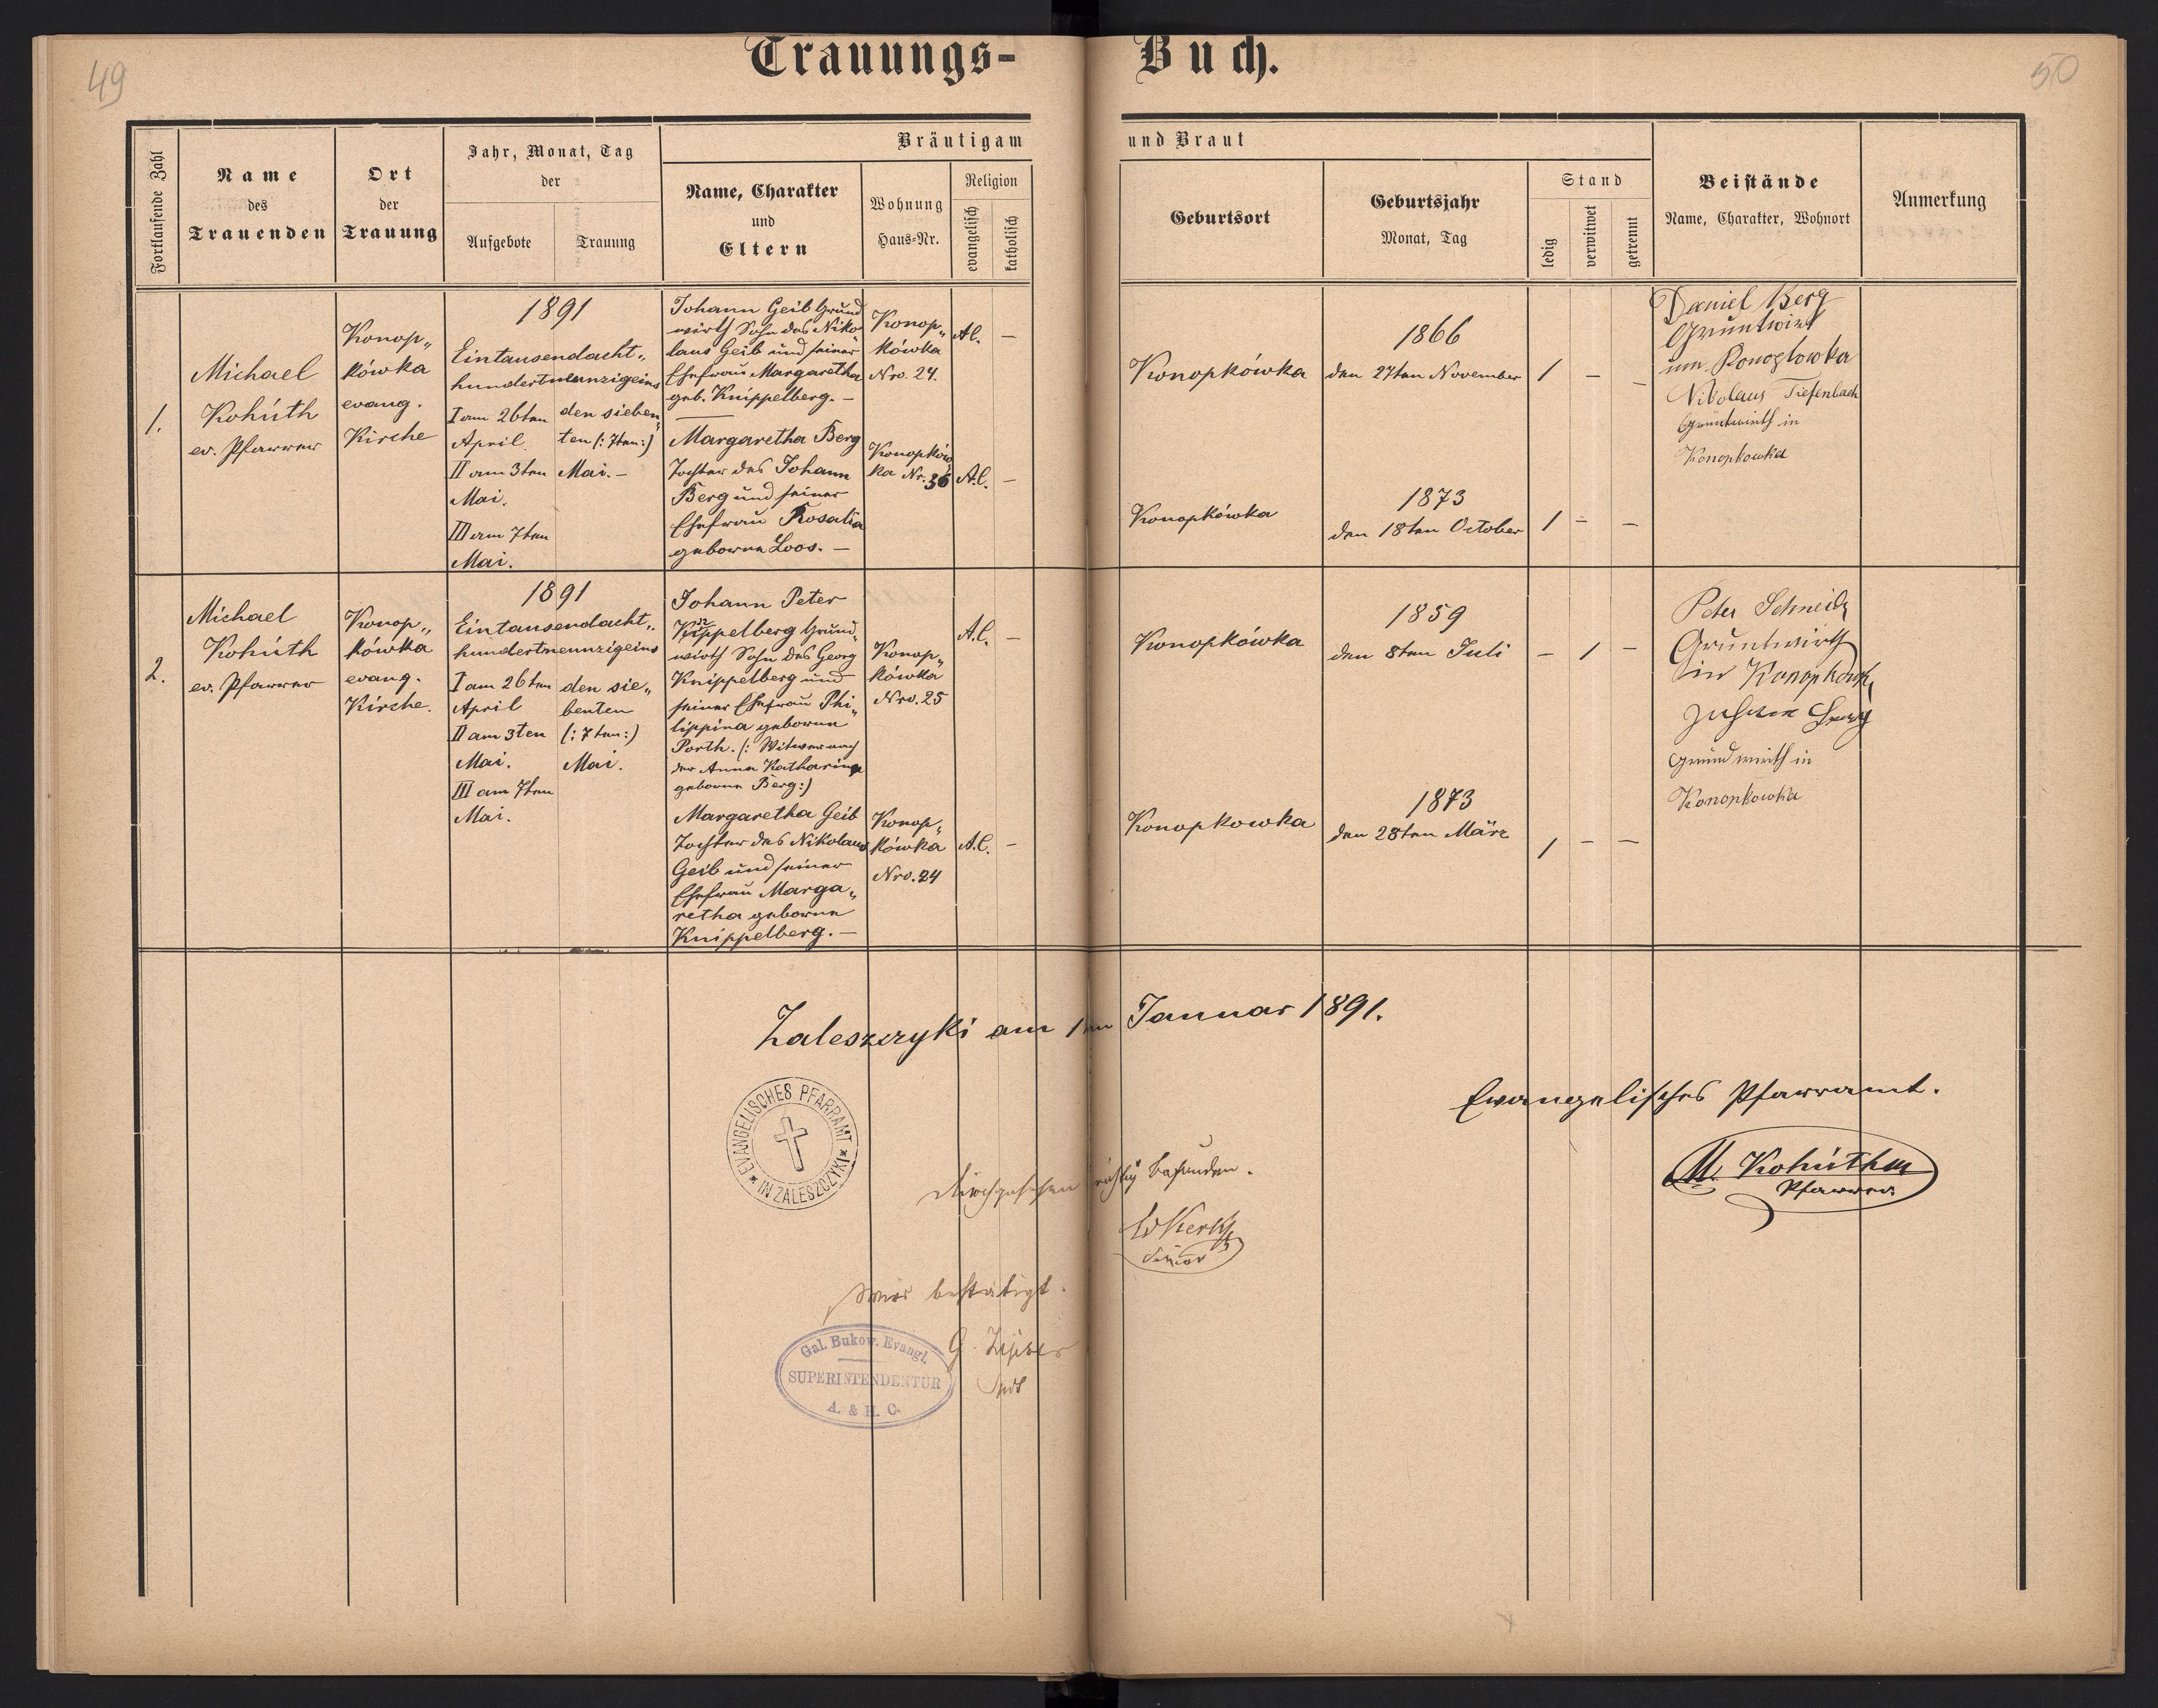 49
50
Trauungs-Buch.
Fortlaufende Zahl
Name des Trauenden
Ort der Trauung
Jahr, Monat, Tag der
Aufgebote
Trauung
Bräutigam und Braut
Name, Charakter und Eltern
Wohnung Haus-Nr.
Religion
evangelisch
katholisch
Geburtsort
Geburtsjahr
Monat, Tag
Stand
ledig
verwitwet
getrennt
Beistände
Name, Charakter, Wohnort
Anmerkung
1.
Michael
Kohúth
ev. Pfarrer
Konop„
kówka
evang.
Kirche
1891
Eintausendacht„
hundertneunzigeins
I am 26ten
April
II am 3ten
Mai.
III am 7ten
Mai.
den sieben„
ten (: 7ten :)
Mai. –
Johann Geib Grund
wirth Sohn des Niko
laus Geib und seiner
Ehefrau Margaretha
geb. Knippelberg. –
Konop„
kówka
Nro. 24.
A.C. –
Konopkówka
1866
den 27ten November
1 – –
Margaretha Berg
Tochter des Johann
Berg und seiner
Ehefrau Rosalia
geborne Loos. –
Konopków
ka Nr. 36
A.C. –
Konopkówka
1873
den 18ten October
1 – –
Daniel Berg
Gruntwirt
Nikolaus Tiefenbach
Gruntwirth in
Konopkowka
2.
Michael
Kohúth
ev. Pfarrer
Konop„
kówka
evang.
Kirche.
1891
Eintausendacht„
hundertneunzigeins
I am 26ten
April
II am 3ten
Mai.
III am 7ten
Mai.
den sie„
benten
(: 7ten :)
Mai.
Johann Peter
Knippelberg Grund„
wirth Sohn des Georg
Knippelberg und
seiner Ehefrau Phi„
lippina geborne
Porth. (: Witwer nach
der Anna Katharina
geborne Berg :)
Konop„
kówka
Nro. 25
A.C. –
Konopkówka
1859
den 8ten Juli
– 1 –
Margaretha Geib
Tochter des Nikolaus
Geib und seiner
Ehefrau Marga„
retha geborne
Knippelberg. –
Konop„
kówka
Nro. 24
A.C. –
Konopkowka
1873
den 28ten März
1 – –
Peter Schneid
Gruntwirth
in
Grundwirth in
Konopkowka
Zaleszczyki am 1ten Januar 1891.
Evangelisches Pfarramt.
M. Kohúth
Pfarrer.
EVANGELISCHES PFARRAMT
* IN ZALESZCZYKI *
Durchgesehen richtig befunden.
Senior
Wird bestätigt.
Gal. Bukow. Evangl.
SUPERINTENDENTUR
A. & H. C.